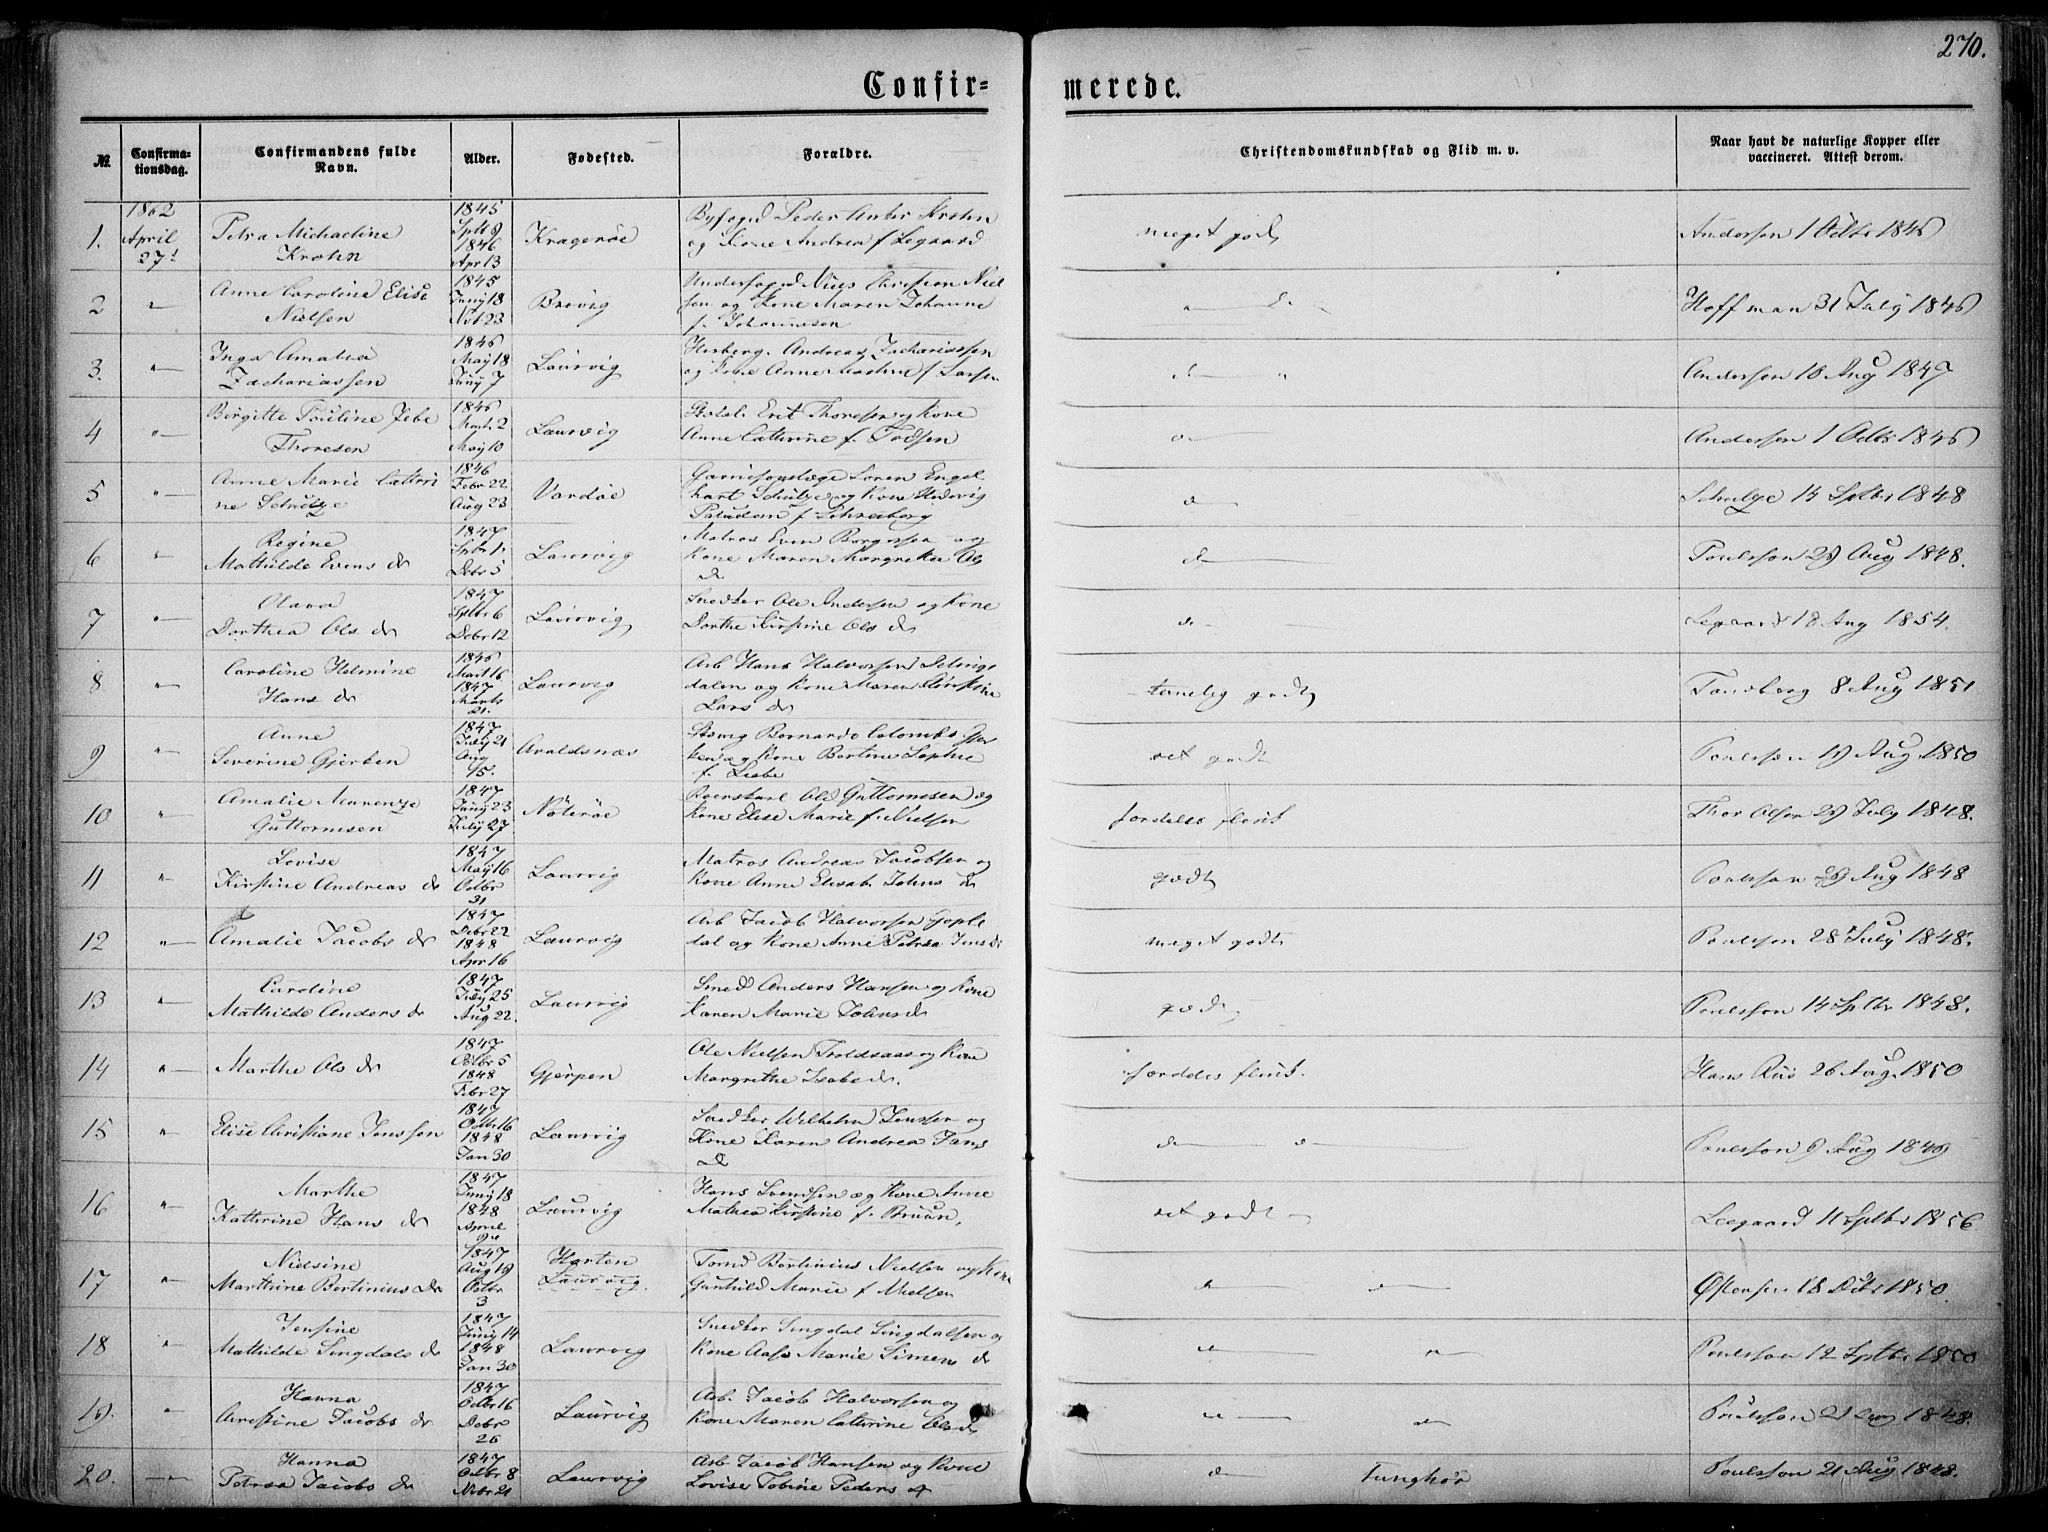 270.
Confir=
merede.
№
Confirma-
tionsdag.
Confirmandens fulde
Navn.
Alder.
Fødested.
Forældre.
Christendomskundskab og Flid m. v.
Naar havt de naturlige Kopper eller
vaccineret. Attest derom.
1862
1. April
27
Petra Michaeline
Krohn
1845
Sptb 9
1846
Apr 13
Kragerøe
Byfoged Peder Anker Krohn
og Kone Andrea f Legaard
meget godt
Anderssen 1 Octbr 1846
2
Anne Caroline Elise
Nielsen
1845
Juny 18
Nvb 23
Brevig
Underfoged Niels Christian Niel
sen og Kone Maren Johanne
f. Johannesen
Hoffman 31 July 1846
3.
Inga Amalia
Zachariassen
1846
May 18
Juny 7
Laurvig
Herberg. Andreas Zachariassen
og Kone Anne Mathea f Larsen
Anderssen 18 Aug 1847
4
Birgitte Pouline Jebe
Thoresen
1846
Marts 2
May 10
Laurvig
Erik Thoresen og Kone
Anne Cathrine f.
Anderssen 1 Octbr 1846
5
Anne Marie Cathri
ne Schulze
1846
Febr 22
Aug 23
Vardøe
Garnisonslæge Søren Engel
hart Schulze og Kone Hedevig
Paludan f
Schulze 14 Sptbr 1848
6
Regine
Mathilde Evens dr
1847
Sptbr 1
Decbr 5
Laurvig
Matros Even Borgersen og
Kone Maren Margrethe Ols
d
Poulsson 29 Aug 1848.
7
Olava
Dorthea Ols dr
1847
Sptbr 6
Debr 12
Laurvig
Snedker Ole Andersen og Kone
Dorthe Kirstine Ols dr
Legaard 18 Aug 1854.
8
Caroline Helmine
Hans dr
1846
Mart 16
1847
Marts
21.
Laurvig
Arb Hans Halvorsen
dalen og Kone Maren Kirstine
Lars dr
temelig godt
Tandberg 8 Aug 1851
9
Anne
Severine Gjerken
1847
July 21
Aug
15.
Avaldsnæs
Bernardo Colombo Gjer
ken og Kone Bertine Sophie
f.
ret godt
Poulsson 19 Aug 1850
10
Amalie Marenze
Guttormsen
1847
Juny 23
July 27
Nøterøe
Ole Guttormsen og
Kone Elise Marie f. Nielsen
særdeles flink
Thor Olsen 29 July 1848.
11
Lovise
Kirstine Andreas dr
1847
May 16
Octbr
31
Laurvig
Matros Andreas Jacobsen og
Kone Anne Elisab. Johns dr
godt
Poulsson 29 Aug 1848
12
Amalie Jacobs dr
1847
Debr 22
1848
Apr 16
Laurvig
Arb Jacob Halvorsen Gople
dal og Kone Anne Petrea Jens dr
meget godt
Poulsson 28 July 1848.
13
Caroline
Mathilde Anders dr
1847
July 25
Aug 22.
Laurvig
Smed Anders Hansen og Kone
Karen Marie Johns dr
godt
Poulsson 14 Sptbr 1848.
14
Marthe Ols dr
1847
Octbr 5
1848
Febr 27
Gjerpen
Ole Nielsen Troldsaas og Kone
Margrethe Isaks dr.
særdeles flink.
Hans Riis 26 Aug. 1850
15
Elise Christiane Jenssen
1847
Octbr 16
1848
Jan 30
Laurvig
Snedker Wilhelm Jenssen og
Kone Karen Andrea Jans
d
Poulsson 9 Aug 1849
16
Marthe
Kathrine Hans dr
1847
Juny 18
1848
April
Laurvig
Hans Svendsen og Kone Anne
Mathea Kirstine f. Bruun,
ret godt
Leegaard 11 Sptbr 1856
17
Nielsine
Marthine Bertinius dr
1847
Aug 19
Octbr
3
Horten
Laurvig.
Tomd Bertinius Nielsen og Kone
Gunhild Marie f Nielsen
Østensen 18 Dcbr 1850
18
Jensine
Mathilde Singdals dr
1847
Juny 14
1848
Jan 30
Laurvig
Snedker Singdal Singdalsen og
Kone Aase Marie Simens dr
Poulsson 12 Sptbr 1850
19.
Hanna
Christine Jacobs dr
1847
Octbr 16
Debr
26
Laurvig
Arb. Jacob Halvorsen og
Kone Maren Cathrine Ols dr
Poulsson 21 Aug 1848.
20.
Hanna
Petrea Jacobs dr
1847
Octbr 8
Nvbr 21
Laurvig
Arb Jacob Hansen og Kone
Lovise Tobine Peders dr
Tunghør
Poulsson 21 Aug 1848.